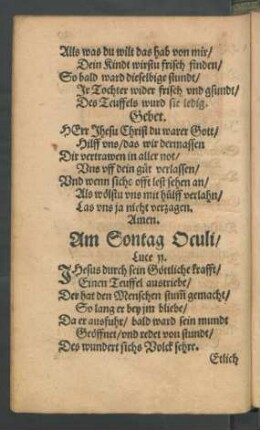 Alls was du wilt das hab von mir/
Dein Kindt wirstu frisch finden/
So bald ward dieselbige stundt/
Ir Tochter wider frisch vnd gsundt/
Des Teuffels wurd sie ledig.
Gebet.
HErr Jhesu Christ du warer Gott/
Hilff vns/das wir dermassen
Dir vertrawen in aller not/
Vns vff dein güt verlassen/
Vnd wenn sichs offt lest sehen an/
Als wölstu vns mit hülff verlahn/
Las vns ja nicht verzagen.
Amen.
Am Sontag Oculi/
Luce xj.
JHesus durch sein Göttliche krafft/
Einen Teuffel austriebe/
Der hat den Menschen stum̃ gemacht/
So lang er bey jm bliebe/
Da er ausfuhr/ bald ward sein mundt
Geöffnet/vnd redet von stundt/
Des wundert sichs Volck sehre.
Etlich